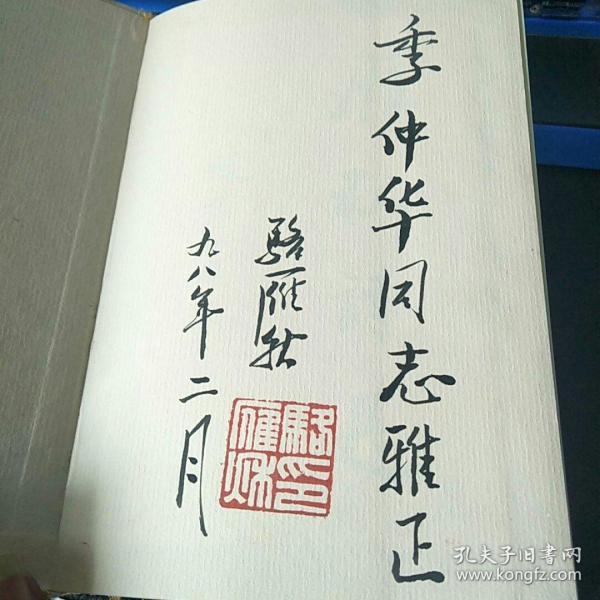 季仲华同志雅正
駱雁秋
九八年二月
駱印
雁秋
孔夫子旧书网
www.kongfz.com